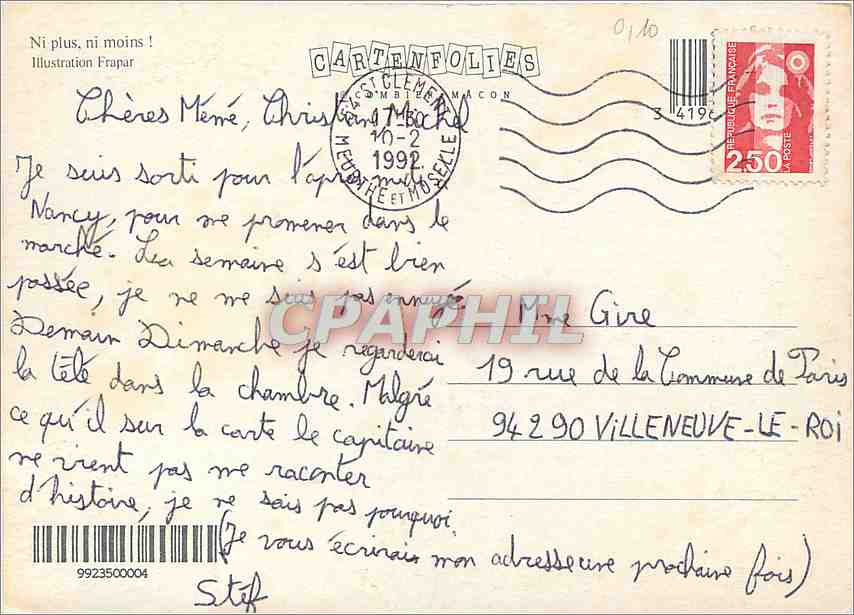 Ni plus, ni moins !
Illustration Frapar
CARTENFOLIES
MACON
0,10
3 4196
REPUBLIQUE FRANÇAISE
2,50
LA POSTE
54 ST CLEMENT
17-30
10-2
1992
MEURTHE ET MOSELLE
Chères Mémé, Christiane Michel
Je suis sorti pour l'après midi
Nancy, pour me promener dans le
marché. La semaine s'est bien
passée, je ne me suis pas ennuyé.
Demain Dimanche je regarderai
la télé dans la chambre. Malgré
ce qu'il sur la carte le capitaine
ne vient pas me raconter
d'histoire, je ne sais pas pourquoi.
(Je vous écrirais mon adresse une prochaine fois)
Stéf
Mme Gire
19 rue de la Commune de Paris
94290 ViLLENEUVE-LE-ROi
9923500004
CPAPHIL